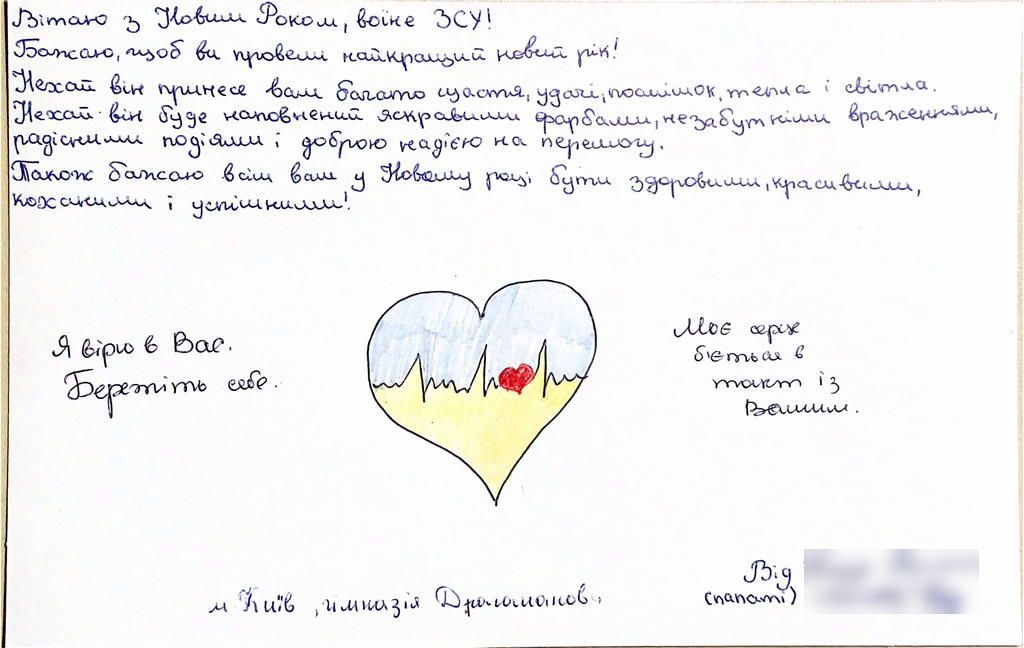 Вітаю з Новим Роком, воїне ЗСУ!
Бажаю, щоб ви провели найкращий новий рік!
Нехай він принесе вам багато щастя, удачі, посмішок, тепла і світла.
Нехай він буде наповнений яскравими фарбами, незабутніми враженнями,
радісними подіями і доброю надією на перемогу.
Також бажаю всім вам у Новому році бути здоровими, красивими,
коханими і успішними!
Я вірю в Вас.
Бережіть себе.
Моє серце
б'ється в
такт із
Вашим.
Від
(папаті)
м. Київ, гімназія Драгоманова